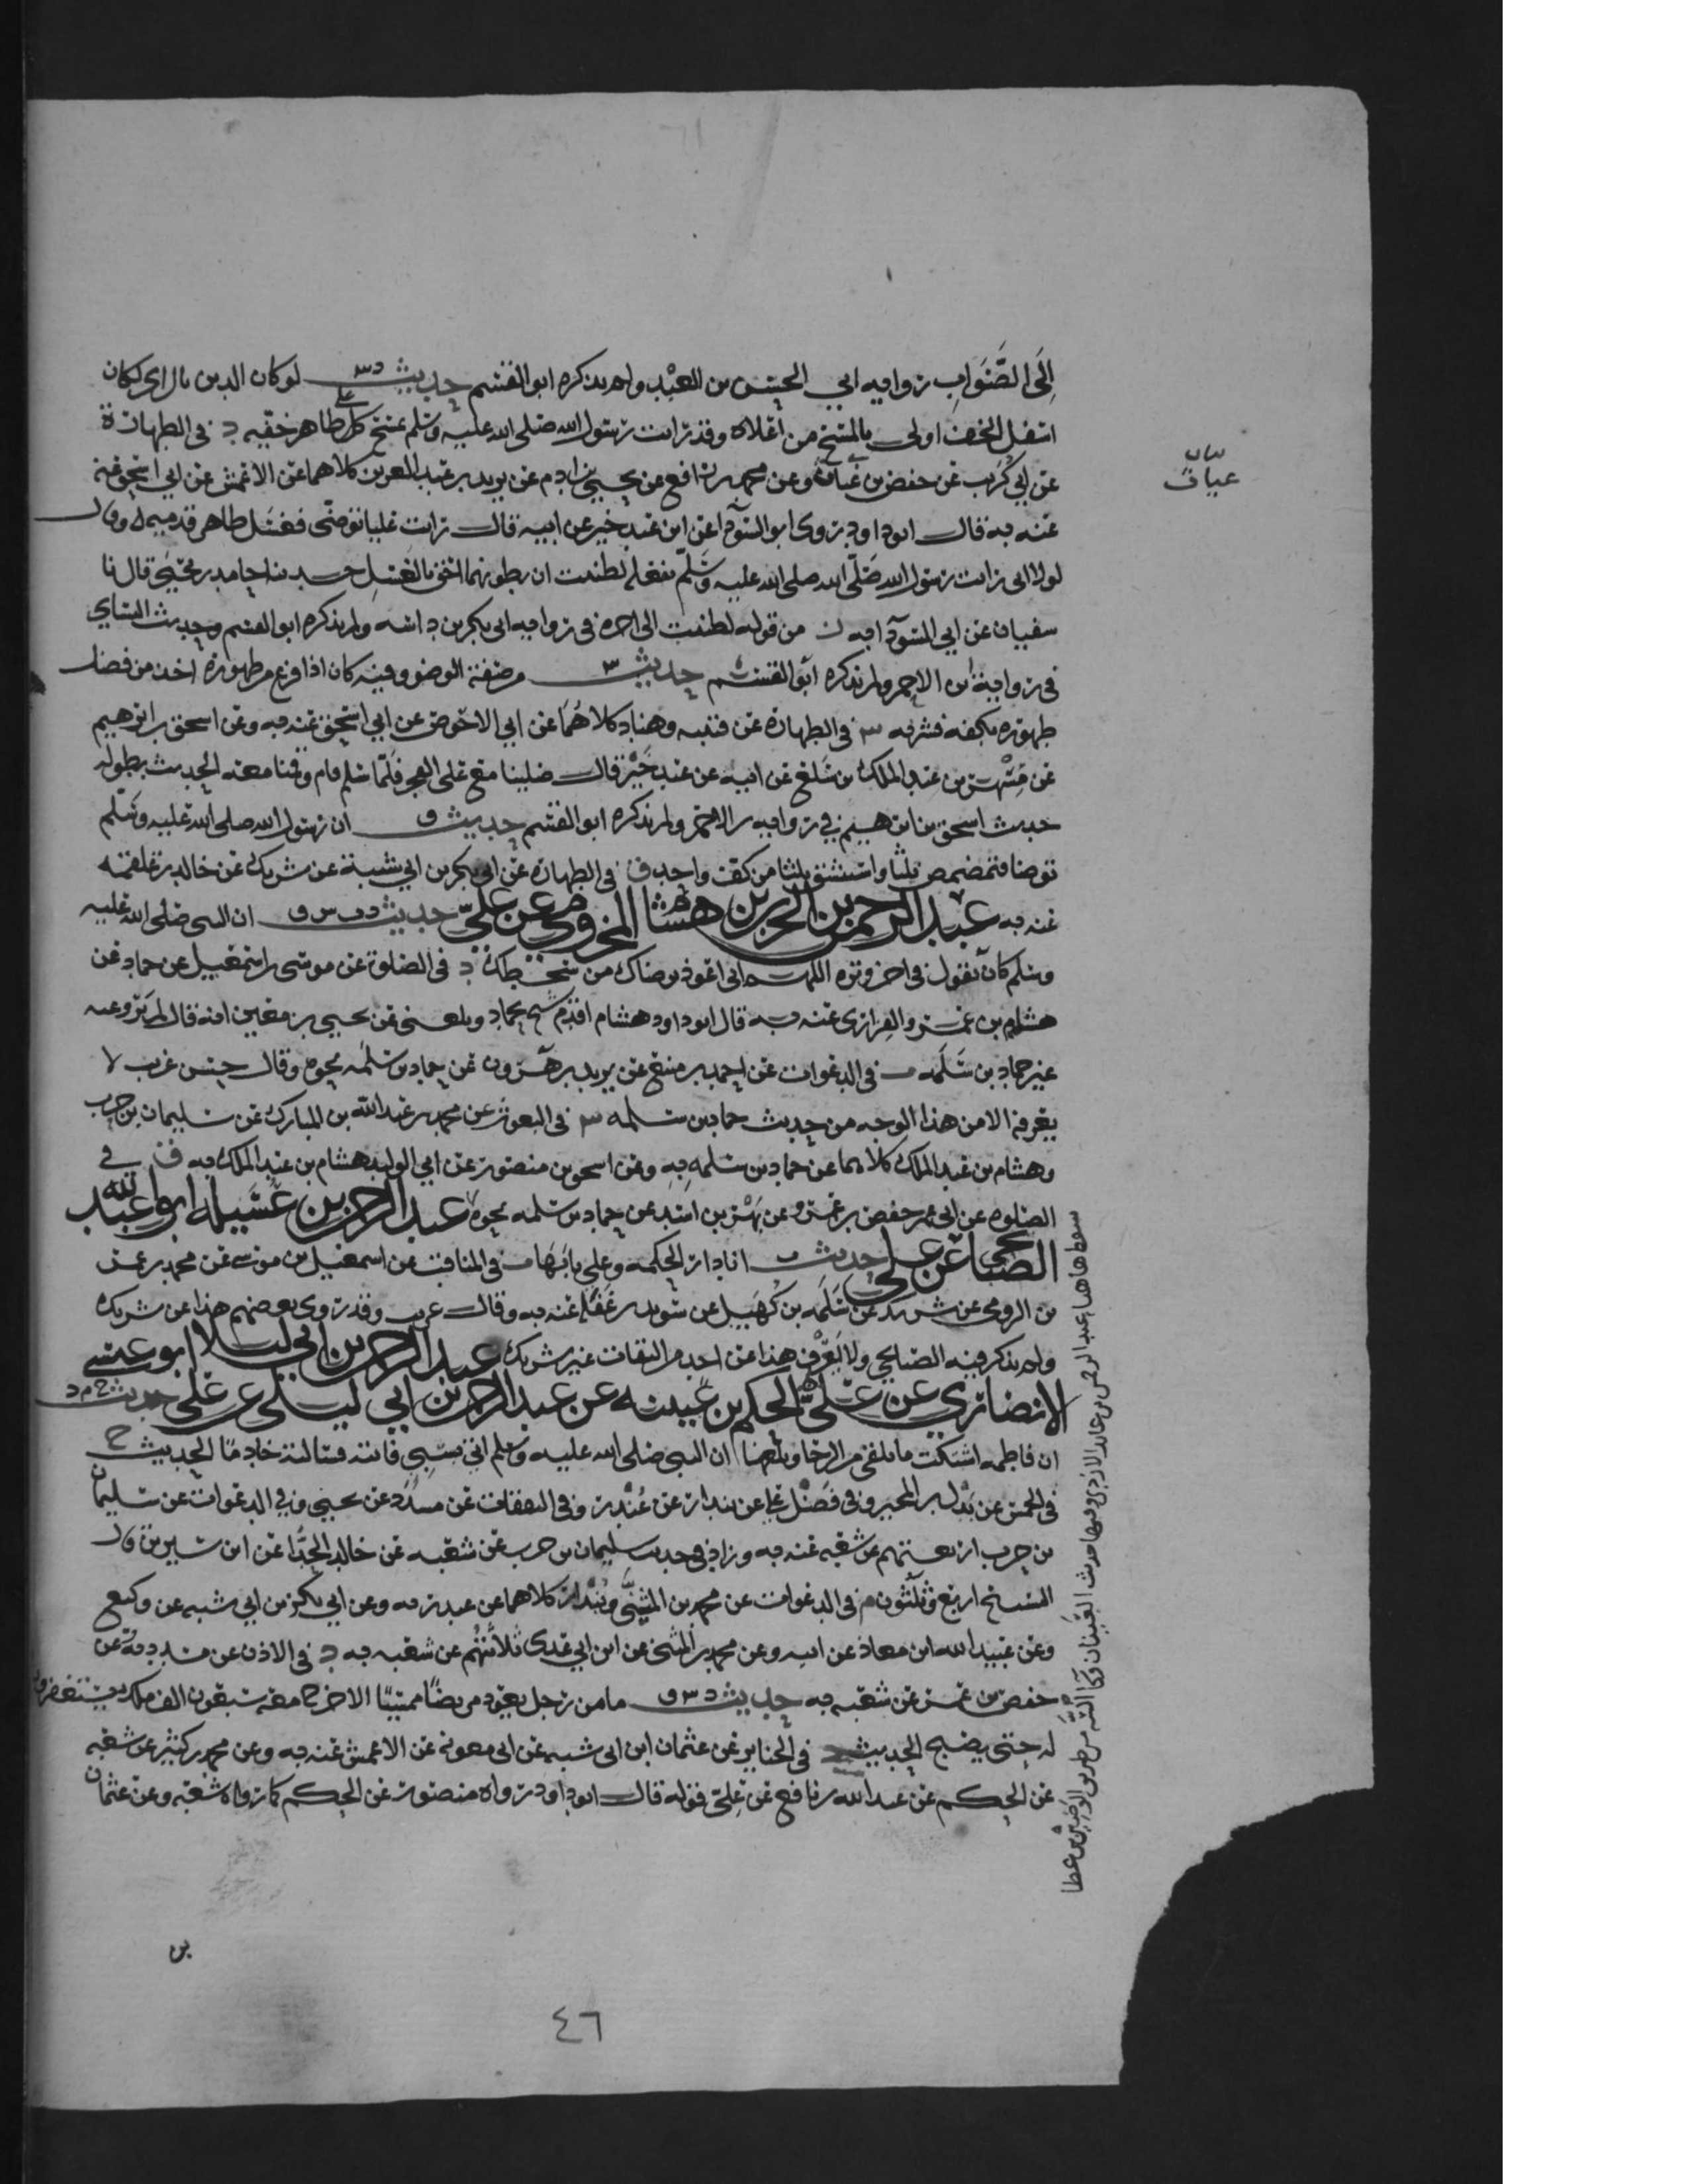 إلى الصواب رواية ابي الحسن بن العبد ولم يذكره ابو القسم حديث د س لو كان الدين بالراي لكان
اسفل الخف اولى بالمسح من أعلاه وقد رايت رسول الله صلى الله عليه وسلم يمسح على ظاهر خفيه د في الطهارة
عن ابي كريب عن حفص بن غياث وعن محمد بن رافع عن يحيى بن ادم عن يزيد بن عبد العزيز كلاهما عن الاعمش عن ابي اسحق عنه
عنه به قال ابو داود روى ابو السوداء عن ابن عبد خير عن ابيه قال رايت عليا توضى فغسل ظاهر قدميه وقال
لولا اني رايت رسول الله صلى الله صلى الله عليه وسلم يفعله لظننت ان بطونهما احق بالغسل حدثنا حامد بن يحيى قال نا
سفيان عن ابي السوداء به من قوله لظننت الى اخره في رواية ابي بكر بن داسه ولم يذكره ابو القسم وحديث النساي
في رواية ابن الاحمر ولم يذكره ابو القسم حديث س من صفة الوضو وفيه كان اذا فرغ من طهوره اخذ من فضل
طهوره بكفه فشربه س في الطهارة عن قتيبه وهناد كلاهما عن ابي الاحوص عن ابي اسحق عنه به وعن اسحق بن ابرهيم
عن مسهر بن عبد الملك بن سلع عن ابيه عن عبد خير قال صلينا مع علي الفجر فلما سلم قام وقمنا معه الحديث بطوله
حديث اسحق بن ابرهيم في رواية بن الاحمر ولم يذكره ابو القسم حديث ق ان رسول الله صلى الله عليه وسلم
توضا فتمضمض ثلثا واستنشق ثلثا من كف واحد ق في الطهارة عن ابي بكر بن ابي شيبة عن شريك عن خالد بن علقمه
عنه به عبد الرحمن بن الحرث بن هشام المخزومي عن علي حديث د ت س ق ان النبي صلى الله عليه
وسلم كان يقول في اخر وتره اللهم اني اعوذ برضاك من سخطك د في الصلوة عن موسى بن اسمعيل عن حماد عن
هشام بن عمرو الفزاري عنه به قال ابو داود هشام اقدم شيخ لحماد وبلغني عن يحيى بن معين انه قال لم يرو عنه
غير حماد بن سلمه ت في الدعوات عن احمد بن منيع عن يزيد بن هرون عن حماد بن سلمه نحوه وقال حسن غريب لا
يعرفه الا من هذا الوجه من حديث حماد بن سلمه س في النعوت عن محمد بن عبد الله بن المبارك عن سليمان بن حرب
وهشام بن عبد الملك كلاهما عن حماد بن سلمه به وعن اسحق بن منصور عن ابي الوليد هشام بن عبد الملك به ق في
الصلوة عن ابي عمر حفص بن عمرو عن بهز بن اسد عن حماد بن سلمه نحوه عبد الرحمن بن عسيلة ابو عبد الله
الصنابحي عن علي حديث ت انا دار الحكمه وعلي بابها ت في المناقب عن اسمعيل بن موسى عن محمد بن عمر
بن الرومي عن شريك عن سلمه بن كهيل عن سويد بن غفلة عنه به وقال غريب وقد روى بعضهم هذا عن شريك
ولم يذكر فيه الصنابحي ولا يعرف هذا عن احد من الثقات غير شريك عبد الرحمن بن ابي ليلى ابو عيسى
الانصاري عن علي الحكم بن عيينه عن عبد الرحمن بن ابي ليلى عن علي حديث خ م د
ان فاطمه اشتكت ما تلقى من الرحا وبلغها ان النبي صلى الله عليه وسلم اتي بسبي فاتته فسالته خادما الحديث خ
في الخمس عن بدل بن المحبر وفي فضل علي عن بندار عن غندر وفي النفقات عن مسدد عن يحيى وفي الدعوات عن سليمان
بن حرب اربعتهم عن شعبه عنه به وزاد في حديث سليمان بن حرب عن شعبه عن خالد الحذا عن ابن سيرين قال
التسبيح اربع وثلثون م في الدعوات عن محمد بن المثنى وبندار كلاهما عن غندر به وعن ابي بكر بن ابي شيبه عن وكيع
وعن عبيد الله ابن معاذ عن ابيه وعن محمد بن المثنى عن ابن ابي عدي ثلاثتهم عن شعبه به د في الادب عن مسدد به وعن
حفص بن عمر عن شعبه به حديث د س ق ما من رجل يعود مريضا ممسيا الا خرج معه سبعون الف ملك يستغفرون
له حتى يصبح الحديث د في الجنايز عن عثمان ابن ابي شيبه عن ابي معويه عن الاعمش عنه به وعن محمد بن كثير عن شعبه
عن الحكم عن عبد الله بن نافع عن علي قوله قال ابو داود رواه منصور عن الحكم كما رواه شعبه وعن عثمان
بن
بيان
غياث
سقط هاهنا عبد الرحمن بن عائذ الازدي وفيها حديث العينان وكاء السه من طريق الوضين بن عطا
٤٦